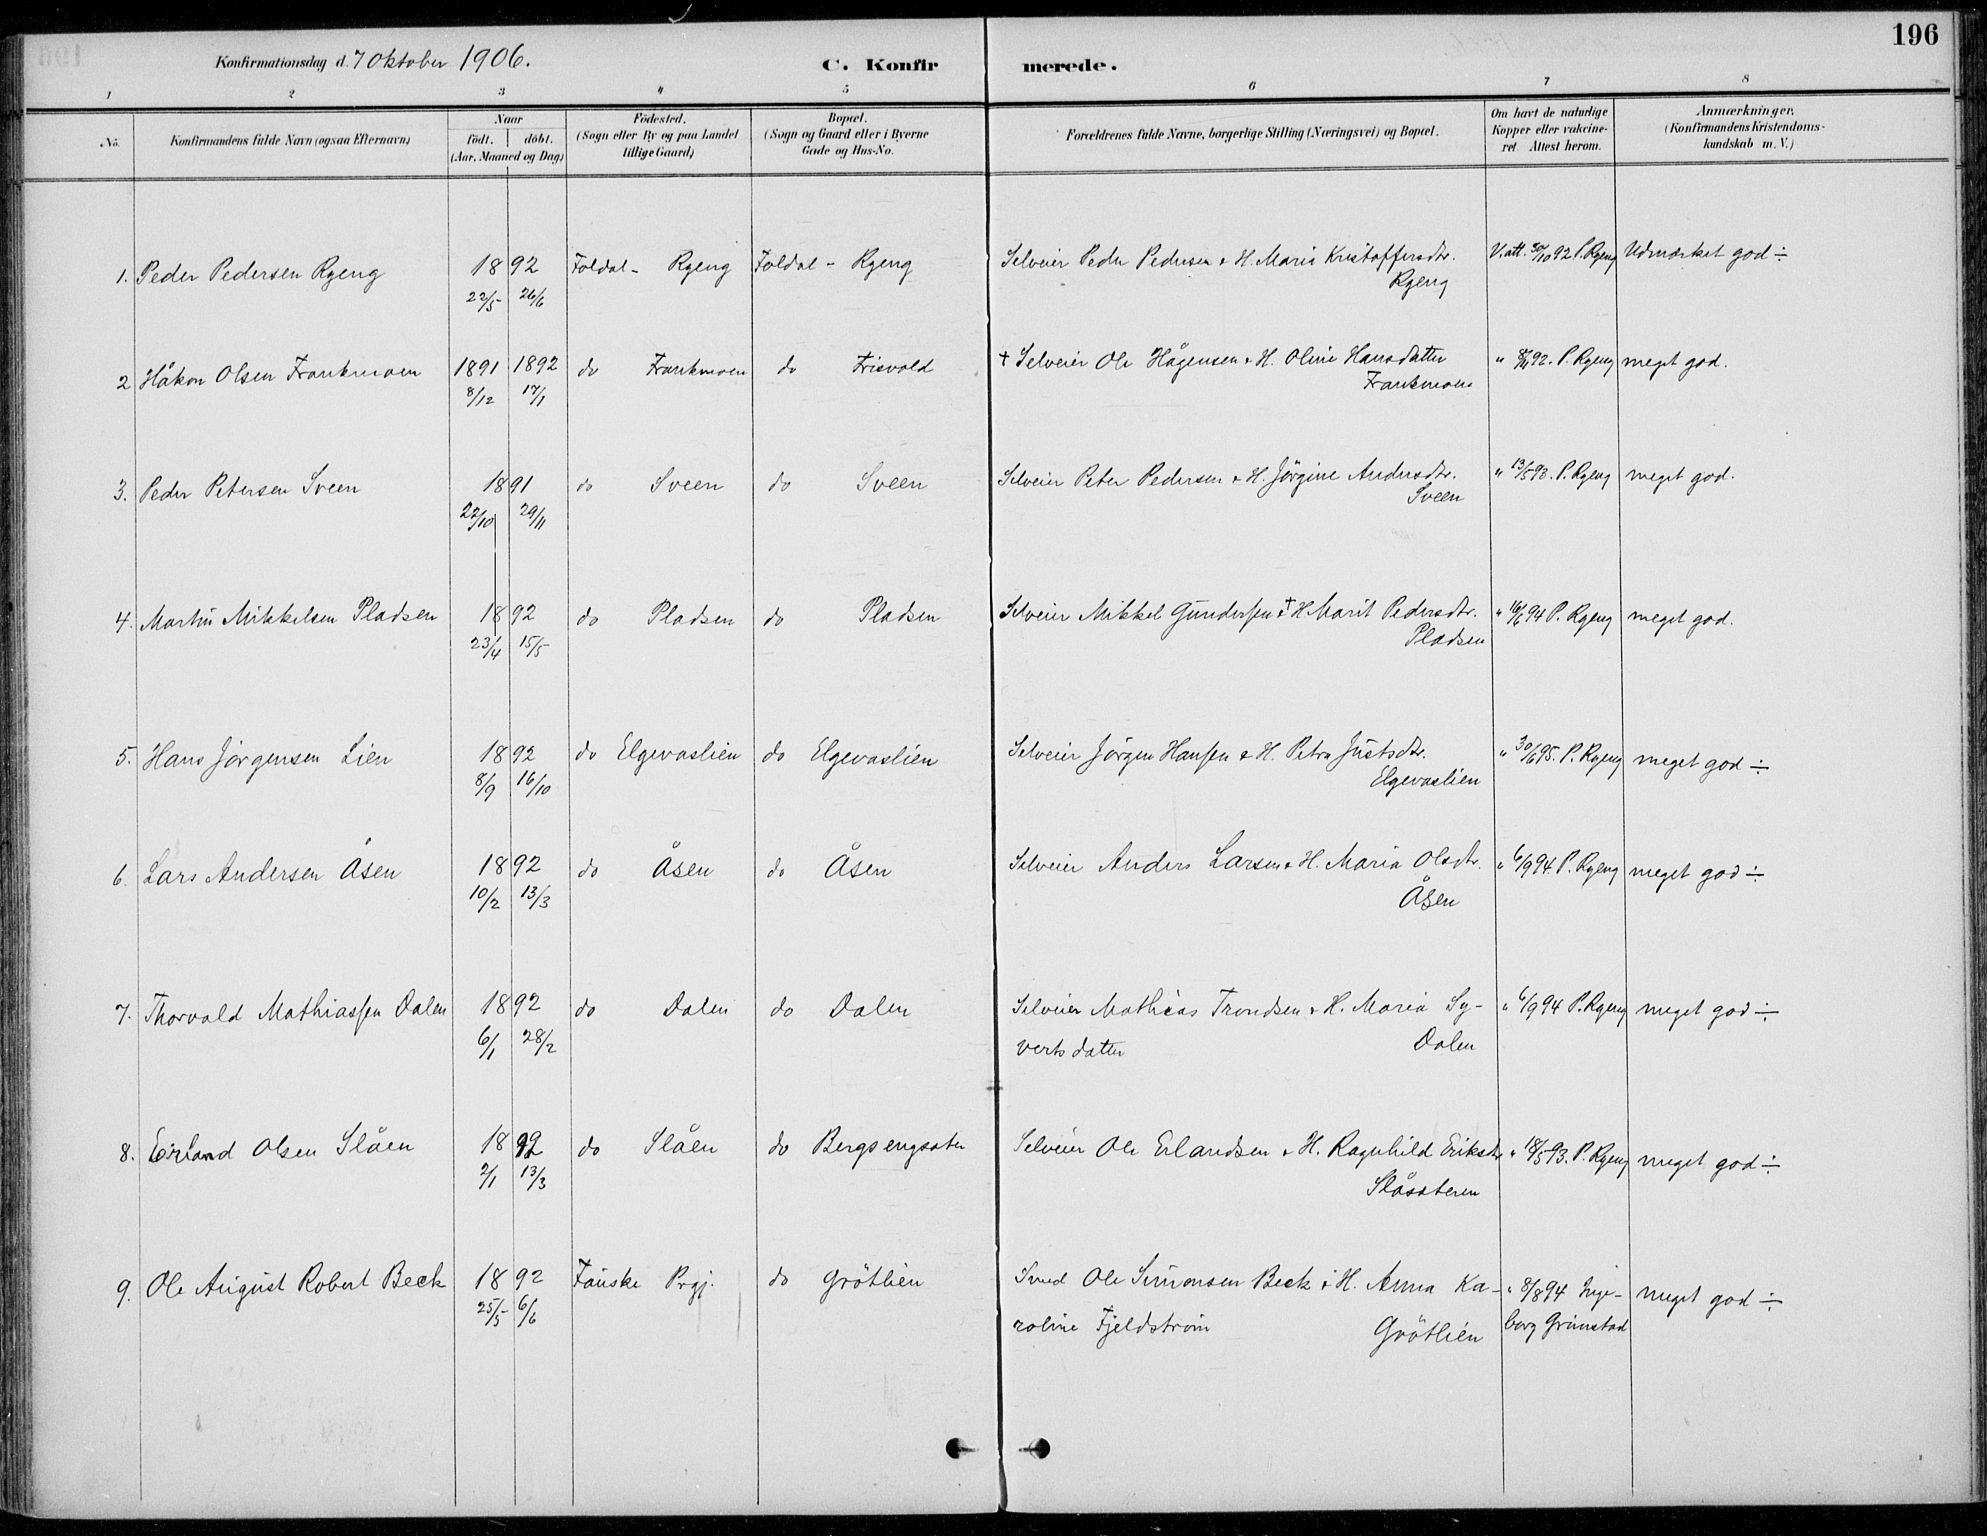 196
Konfirmationsdag d. 7 Oktober 1906.
C. Konfirmerede.
1 2 3 4 5 6 7 8
No.
Konfirmandens fulde Navn (ogsaa Efternavn)
Naar
födt. döbt.
(Aar, Maaned og Dag)
Födested.
(Sogn eller By og paa Landet
tillige Gaard)
Bopæl.
(Sogn og Gaard eller i Byerne
Gade og Hus-No.
Forældrenes fulde Navne, borgerlige Stilling (Næringsvei) og Bopæl.
Om havt de naturlige
Kopper eller vakcine-
ret. Attest herom.
Anmærkninger.
(Konfirmandens Kristendoms-
kundskab m. V.)
1. Peder Pedersen Ryeng 1892 Foldal - Ryeng Foldal - Ryeng Selveier Peder Pedersen & H. Maria Kristoffersdtr. V. att. 30/10 92 P. Ryeng Udmærket god ÷
22/5 26/6 Ryeng
2 Håkon Olsen Frankmoen 1891 1892 do Frankmoen do Frisvold † Selveier Ole Hågensen & H. Oline Hansdatter " 92. P. Ryeng meget god.
8/12 17/1 Frankmoen
3. Peder Petersen Sveen 1891 do Sveen do Sveen Selveier Peter Pedersen & H. Jörgine Andersdtr. " 13/5 93. P. Ryeng meget god.
22/10 29/11 Sveen
4. Martin Mikkelsen Pladsen 1892 do Pladsen do Pladsen Selveier Mikkel Gundersen & † H. Marit Pedersdtr. " 16/6 94 P. Ryeng meget god.
23/4 15/5 Pladsen
5. Hans Jörgensen Lien 1892 do Elgevaslien do Elgevaslien Selveier Jörgen Hansen & H. Petra Justsdtr. " 30/6 95. P. Ryeng meget god ÷
8/9 16/10 Elgevaslien
6. Lars Andersen Åsen 1892 do Åsen do Åsen Selveier Anders Larsen & H. Maria Olsdtr. " 6/9 94. P. Ryeng meget god ÷
10/2 13/3 Åsen
7. Thorvald Mathiassen Dalen 1892 do Dalen do Dalen Selveier Mathias Trondsen & H. Maria Sy- " 6/9 94 P. Ryeng meget god ÷
6/1 28/2 vertsdatter Dalen
8. Erland Olsen Slåen 1892 do Slåen do Bergsengsæter Selveier Ole Erlandsen & H. Ragnhild Eriksdtr " 18/5 93. P. Ryeng meget god ÷
2/1 13/3 Slåsæteren
9. Ole August Robert Beck 1892 Fauske Prgj. do Grötlien Smed Ole Simonsen Beck & H. Anna Ka- " 8/8 94 Inge- meget god ÷
25/5 6/6 roline Fjeldström Grötlien borg Grimstad